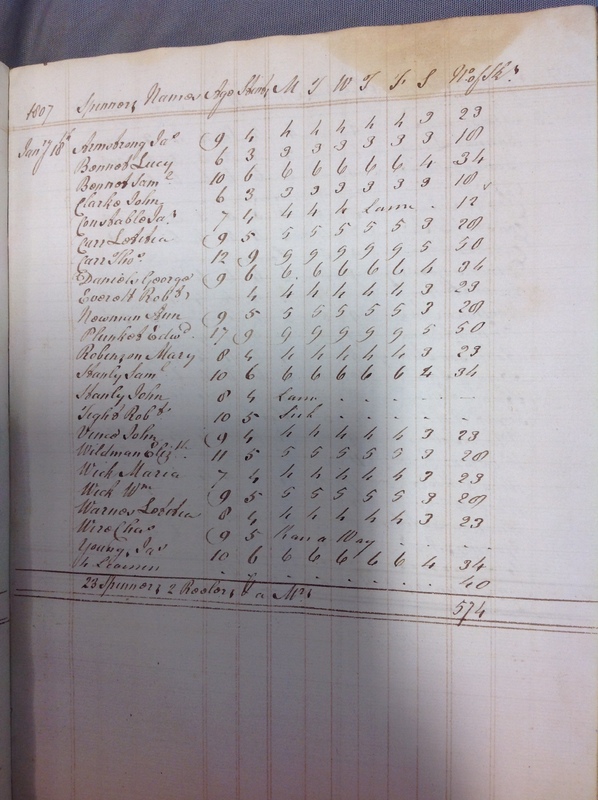 1807 Spinners Names Age Stint M T W T F S No. of Sks
Jany 18th Armstrong Jas 9 4 4 4 4 4 4 3 23
Bennet Lucy 6 3 3 3 3 3 3 3 18
Bennet Saml 10 6 6 6 6 6 6 4 34
Clarke John 6 3 3 3 3 3 3 3 18
Constable Jas 7 4 4 4 4 Lame . 12
Carr Letitea 9 5 5 5 5 5 5 3 28
Carr Thos 12 9 9 9 9 9 9 5 50
Daniels George 9 6 6 6 6 6 6 4 34
Everett Robt 4 4 4 4 4 4 3 23
Newman Ann 9 5 5 5 5 5 5 3 28
Plunket Edwd 17 9 9 9 9 9 9 5 50
Robinson Mary 8 4 4 4 4 4 4 3 23
Stanly Saml 10 6 6 6 6 6 6 4 34
Stanly John 8 4 Lame . . . . .
Tight Robt 10 5 Sick . . . . .
John 9 4 4 4 4 4 4 3 23
Wildman Elizth 11 5 5 5 5 5 5 3 28
Wick Maria 7 4 4 4 4 4 4 3 23
Wick Wm 9 5 5 5 5 5 5 3 28
Warnes Letitea 8 4 4 4 4 4 4 3 23
Wire Chas 9 5 Ran a Way . . .
Young Jas 10 6 6 6 6 6 6 4 34
4 . . . . . . 40
23 Spinners 2 Reelers & a Mrs
574